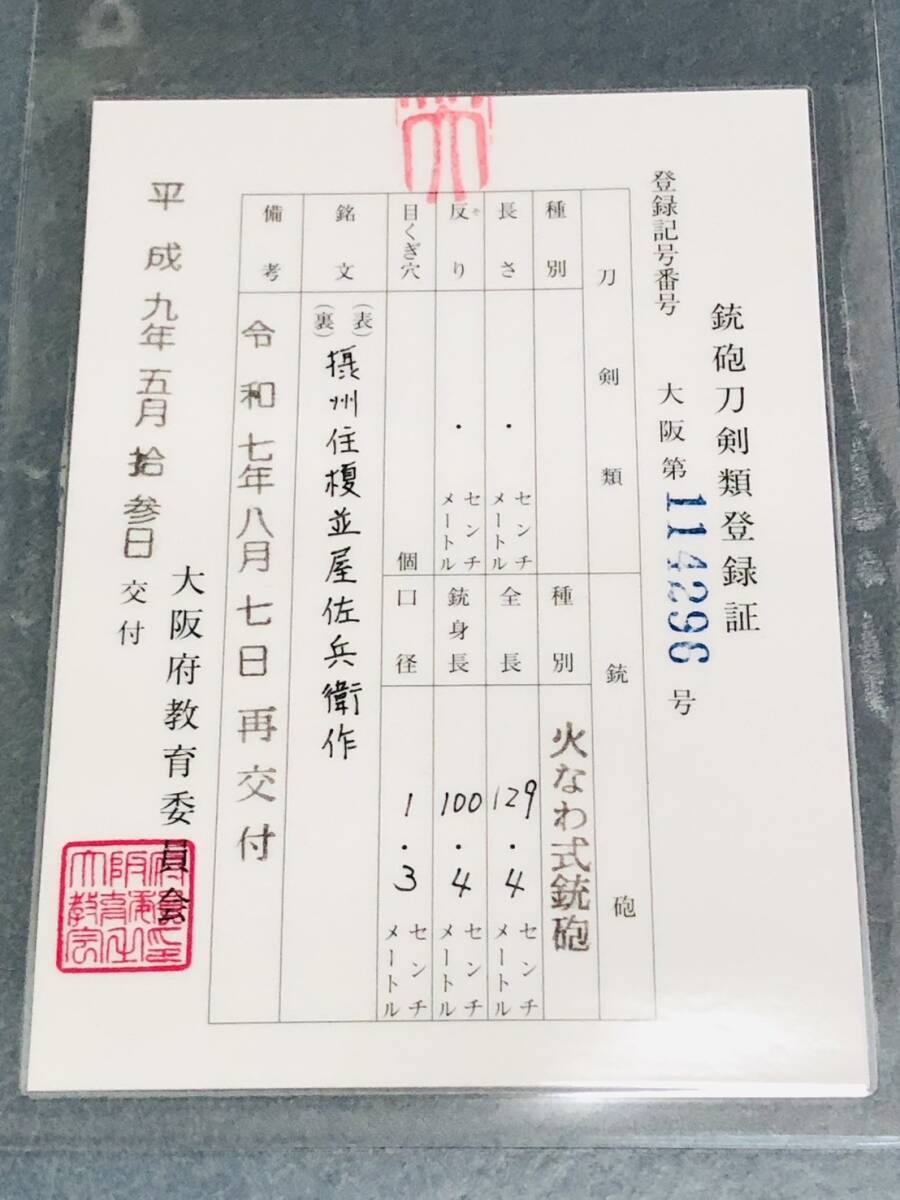 銃砲刀剣類登録証
登録記号番号 大阪第114296号
刀剣類 銃砲
種別
種別 火なわ式銃砲
長さ ・ センチメートル
全長 129.4 センチメートル
反り ・ センチメートル
銃身長 100.4 センチメートル
目くぎ穴 個
口径 1.3 センチメートル
銘文 (表) (裏) 摂州住榎並屋佐兵衛作
備考 令和七年八月七日再交付
大阪府教育委員会
平成九年五月拾参日交付